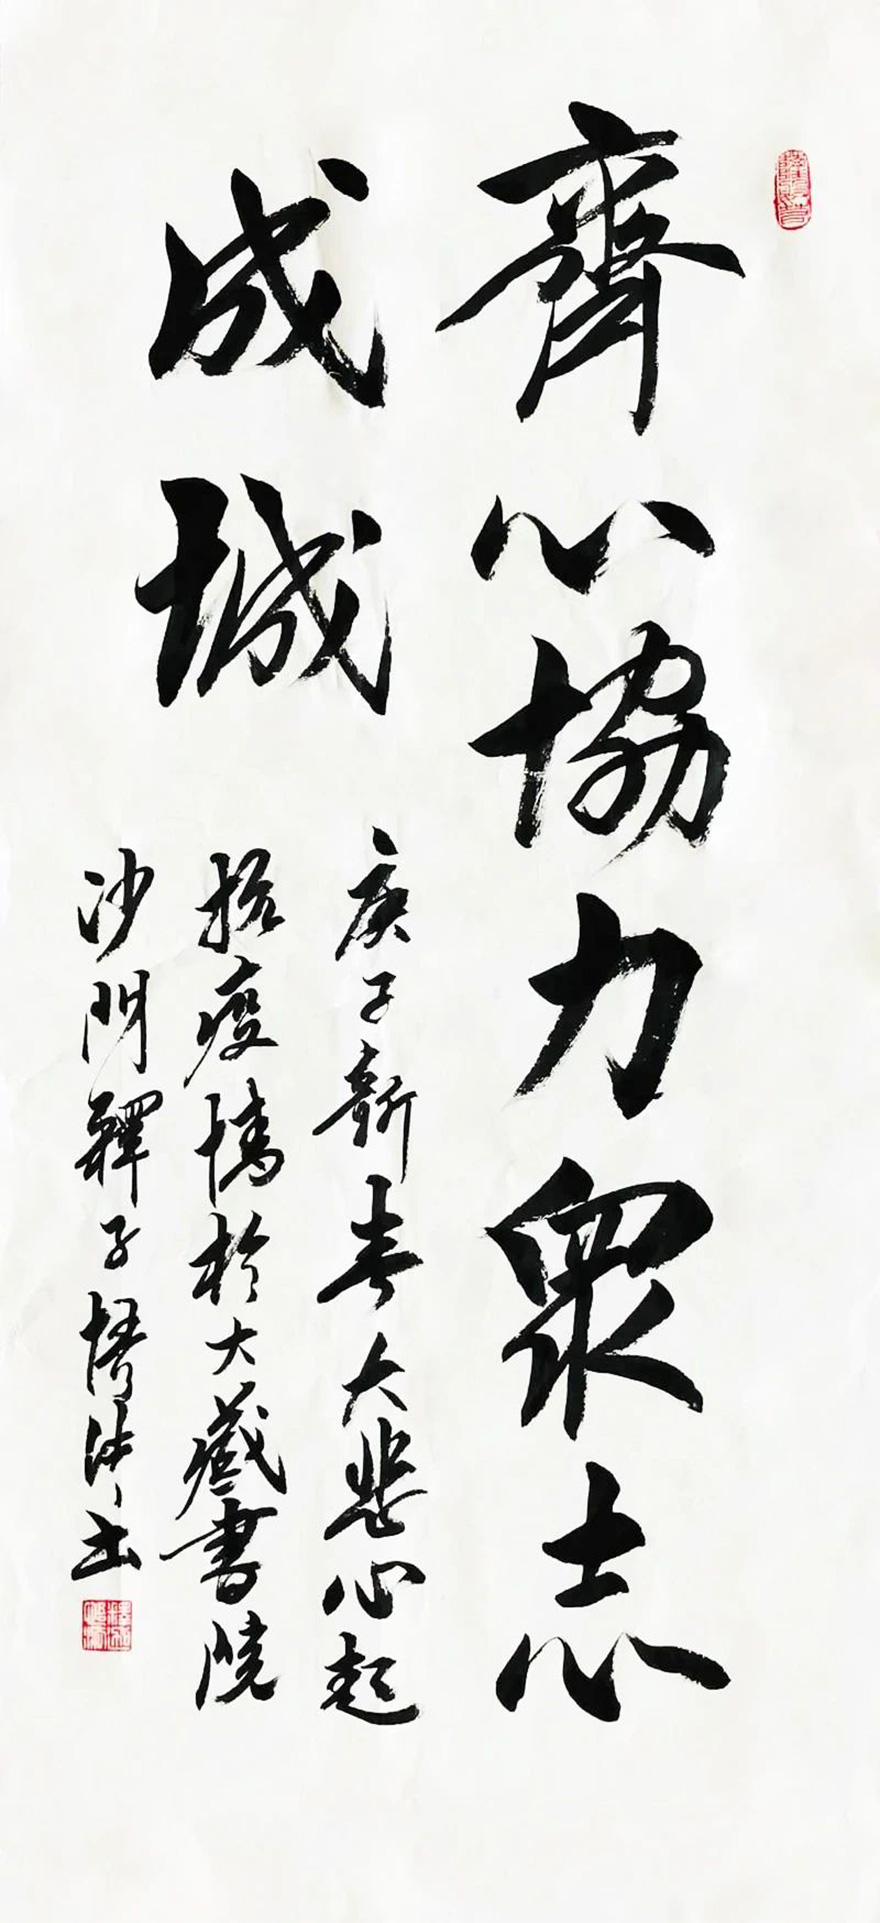 齊心協力眾志
成城
庚子新春大悲心起
抗疫情於大藏書院
沙門釋子悟沐書